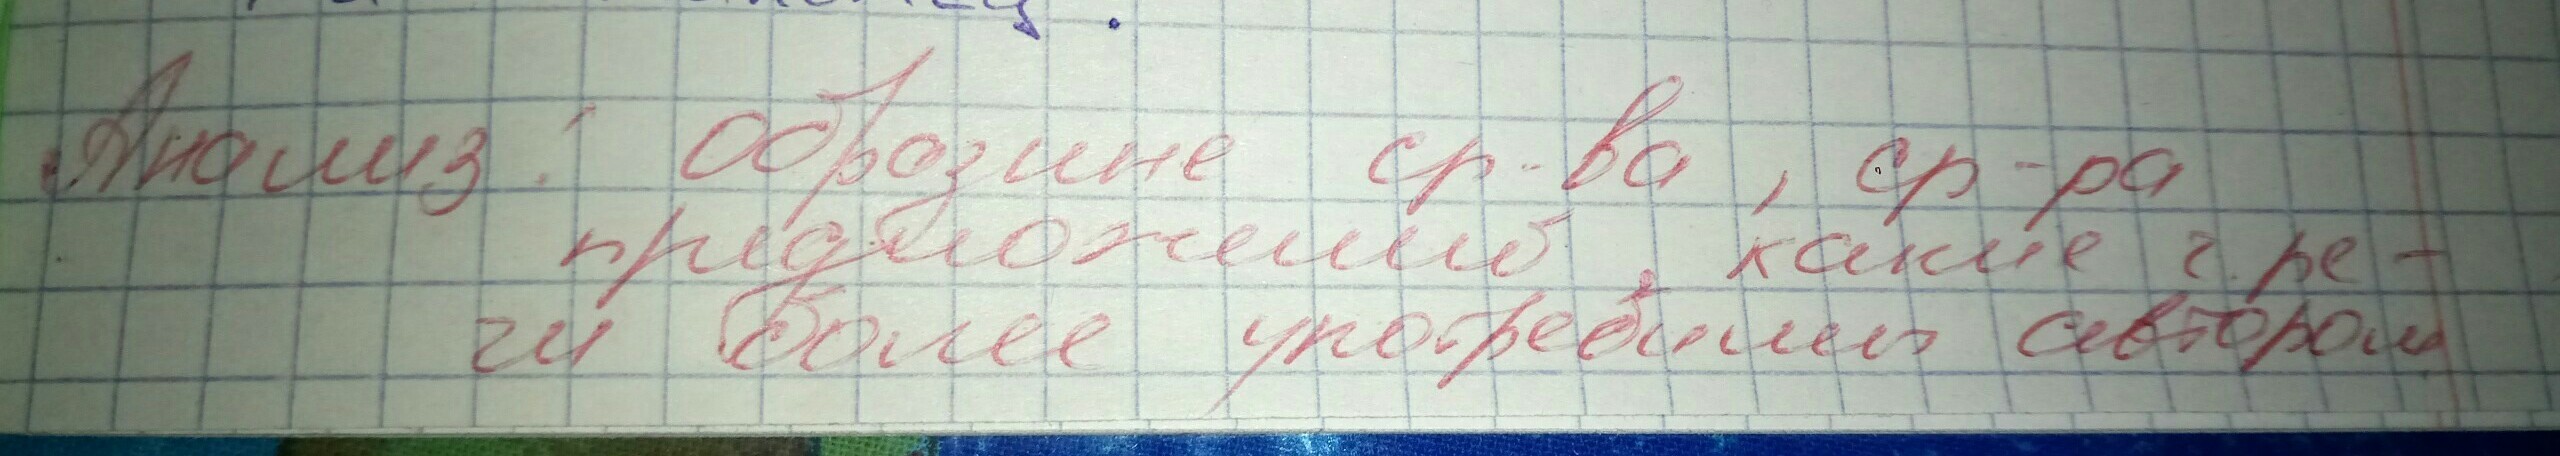 Анализ: образные ср-ва, ср-ра
предложений, какие ч. ре-
чи более употребимы автором